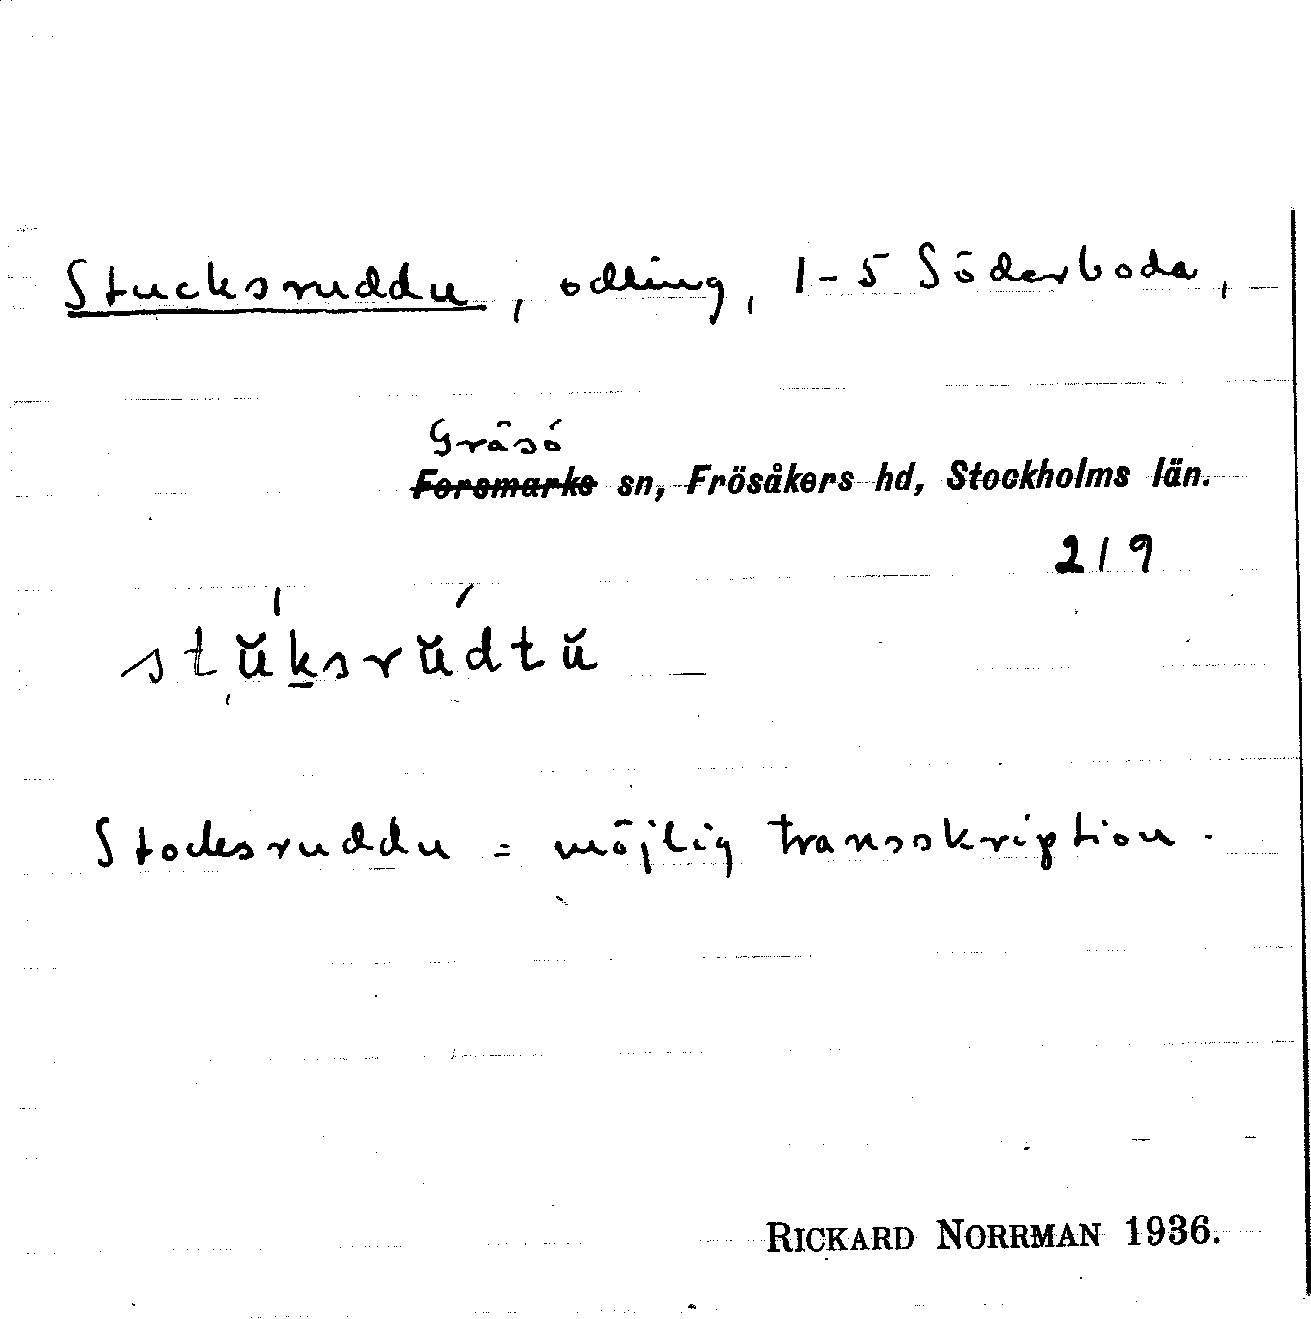 Stucksruddu, odling, 1-5 Söderboda,
Gräsö
Forsmarks sn, Frösåkers hd, Stockholms län.
219
stŭksrŭdtŭ
Stocksruddu = möjlig transskription.
RICKARD NORRMAN 1936.